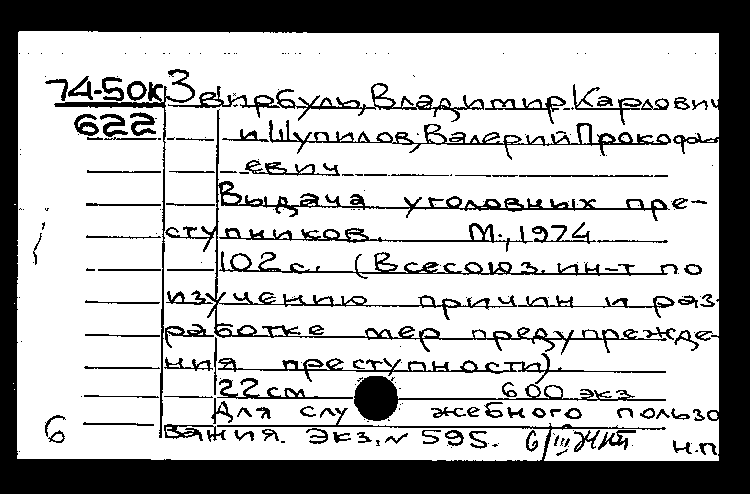 74-50К Звирбуль, Владимир Карлович
622 и Шупилов, Валерий Прокофь
евич
Выдача уголовных пре-
ступников. М., 1974
102 с. (Всесоюз. ин-т по
изучению причин и раз-
работке мер предупрежде-
ния преступности).
22 см. 600 экз
Для служебного пользо
вания. Экз. N 595.
6 н.п